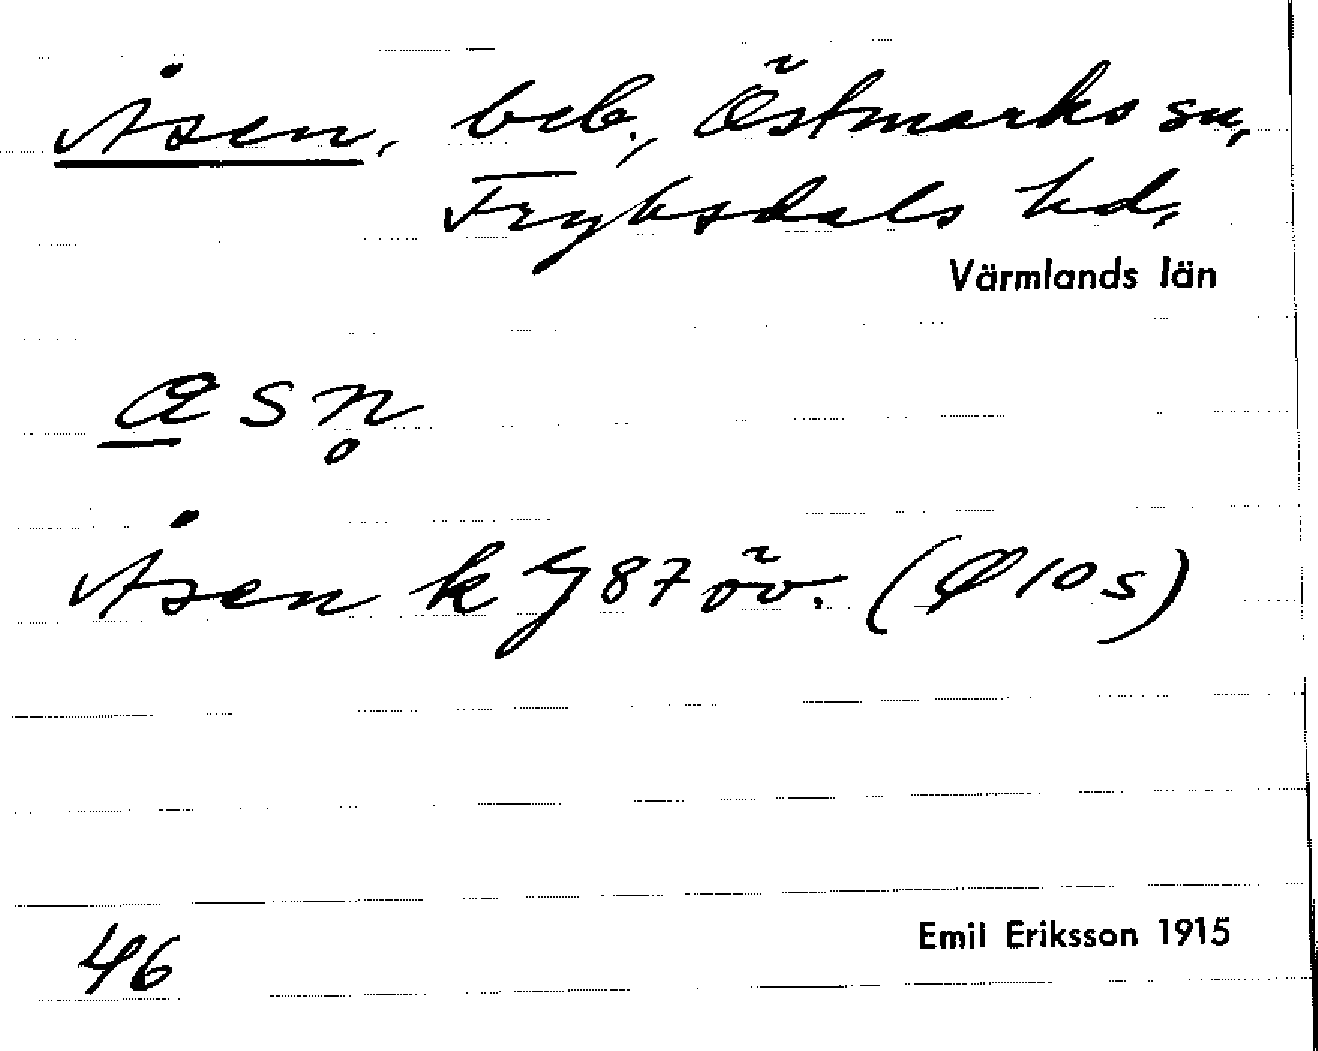 Åsen, beb., Östmarks sn,
Fryksdals hd,
Värmlands län
a s n̥
Åsen k J 87 öv. (Ø 10 s)
Emil Eriksson 1915
46